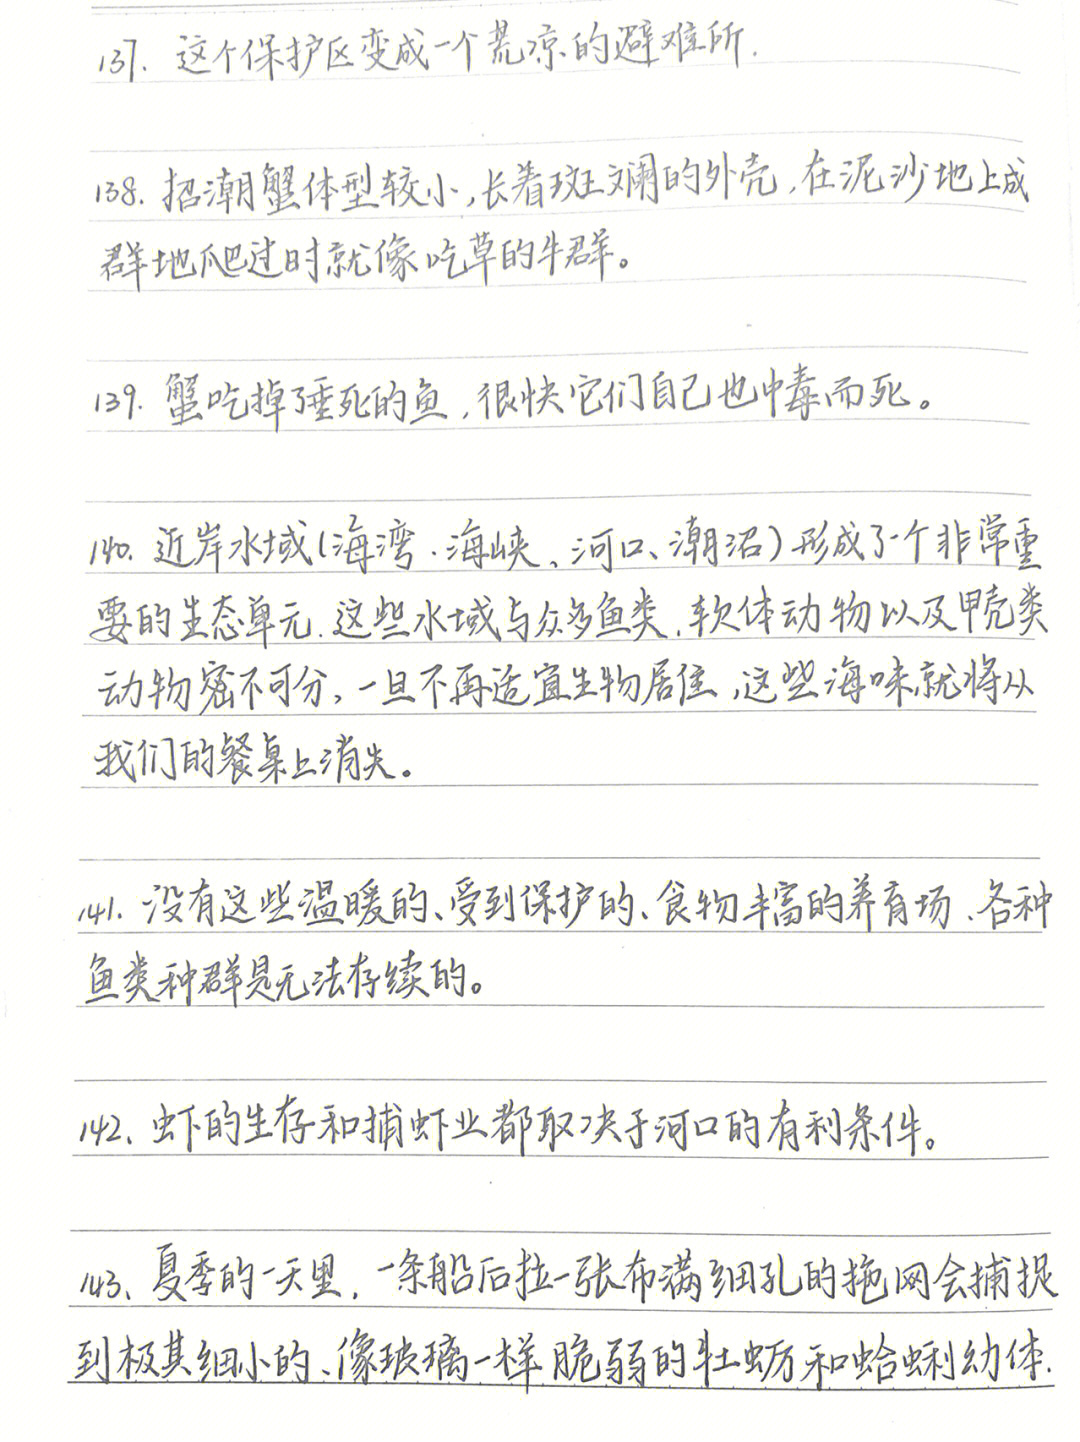 137. 这个保护区变成一个荒凉的避难所.
138. 招潮蟹体型较小,长着斑斓的外壳,在泥沙地上成
群地爬过时就像吃草的牛群。
139. 蟹吃掉了垂死的鱼,很快它们自己也中毒而死。
140. 近岸水域(海湾、海峡、河口、潮沼)形成了个非常重
要的生态单元.这些水域与众多鱼类、软体动物以及甲壳类
动物密不可分,一旦不再适宜生物居住,这些海味就将从
我们的餐桌上消失。
141. 没有这些温暖的、受到保护的、食物丰富的养育场、各种
鱼类种群是无法存续的。
142、虾的生存和捕虾业都取决于河口的有利条件。
143、夏季的一天里,一条船后拉一张布满细孔的拖网会捕捉
到极其细小的、像玻璃一样脆弱的牡蛎和蛤蜊幼体.